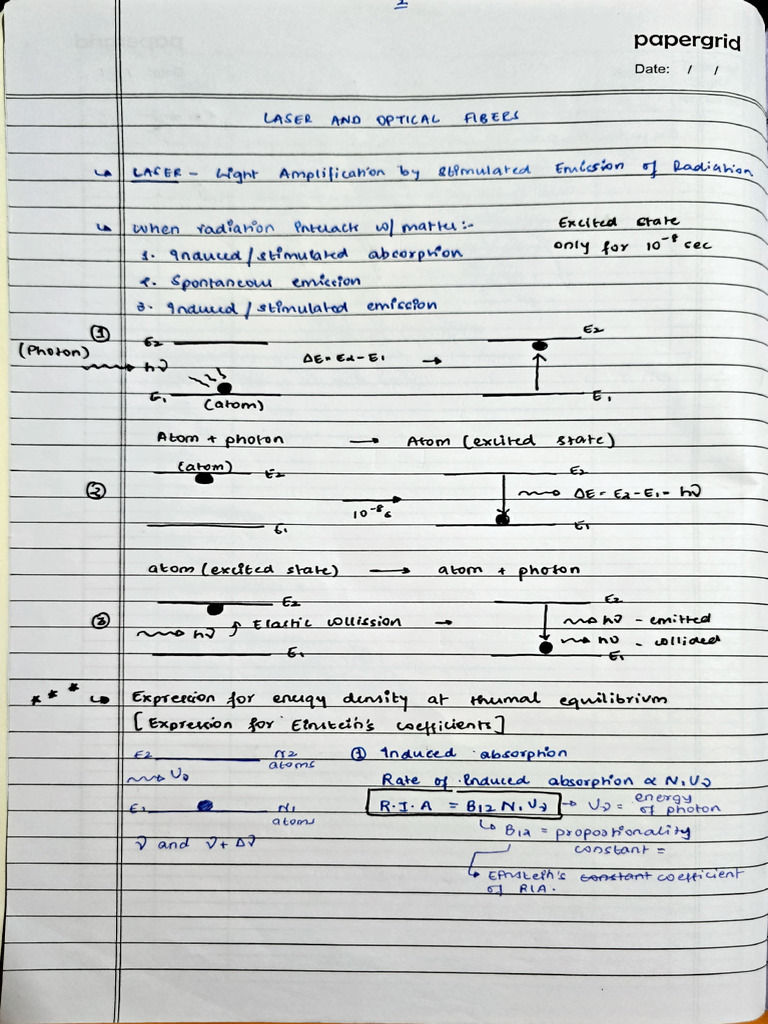 papergrid
Date: / /
LASER AND OPTICAL FIBERS
↳ LASER - Light Amplification by Stimulated Emission of Radiation
↳ When radiation interacts w/ matter:-
Excited state
only for 10⁻⁸ sec
1. Induced/stimulated absorption
2. Spontaneous emission
3. Induced/stimulated emission
① E₂ E₂
(Photon) hν ΔE = E₂-E₁ →
E₁ (atom) E₁
Atom + photon → Atom (excited state)
(atom) E₂ E₂
② 10⁻⁸s → ΔE = E₂-E₁ = hν
E₁ E₁
atom (excited state) → atom + photon
E₂ E₂
③ hν Elastic collission → hν - emitted
hν - collided
E₁ E₁
*** ↳ Expression for energy density at thermal equilibrium
[Expression for Einstein's coefficients]
E₂ N₂ atoms
Uν
E₁ N₁ atoms
ν and ν + Δν
① Induced absorption
Rate of induced absorption ∝ N₁Uν
R.I.A = B₁₂ N₁Uν → Uν = energy of photon
↳ B₁₂ = proportionality
constant =
↳ Einstein's constant coefficient
of RIA.